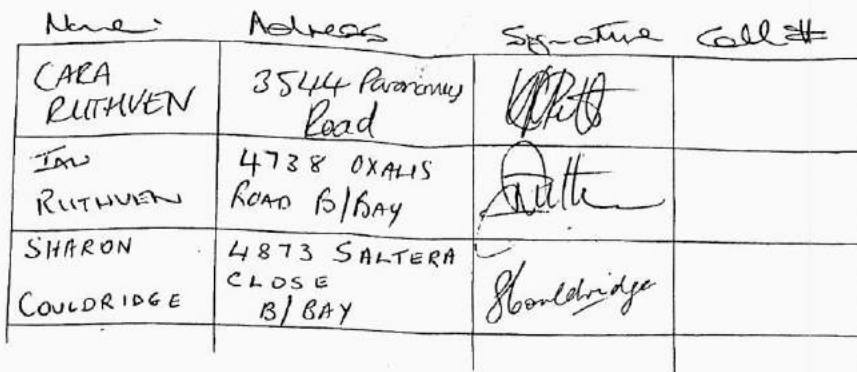 Name: Address Signature Cell #
CARA
RUTHVEN
3544
Road
IAN
RUTHVEN
4738 OXALIS
ROAD B/BAY
SHARON
COULDRIDGE
4873 SALTERA
CLOSE
B/BAY
SCouldridge